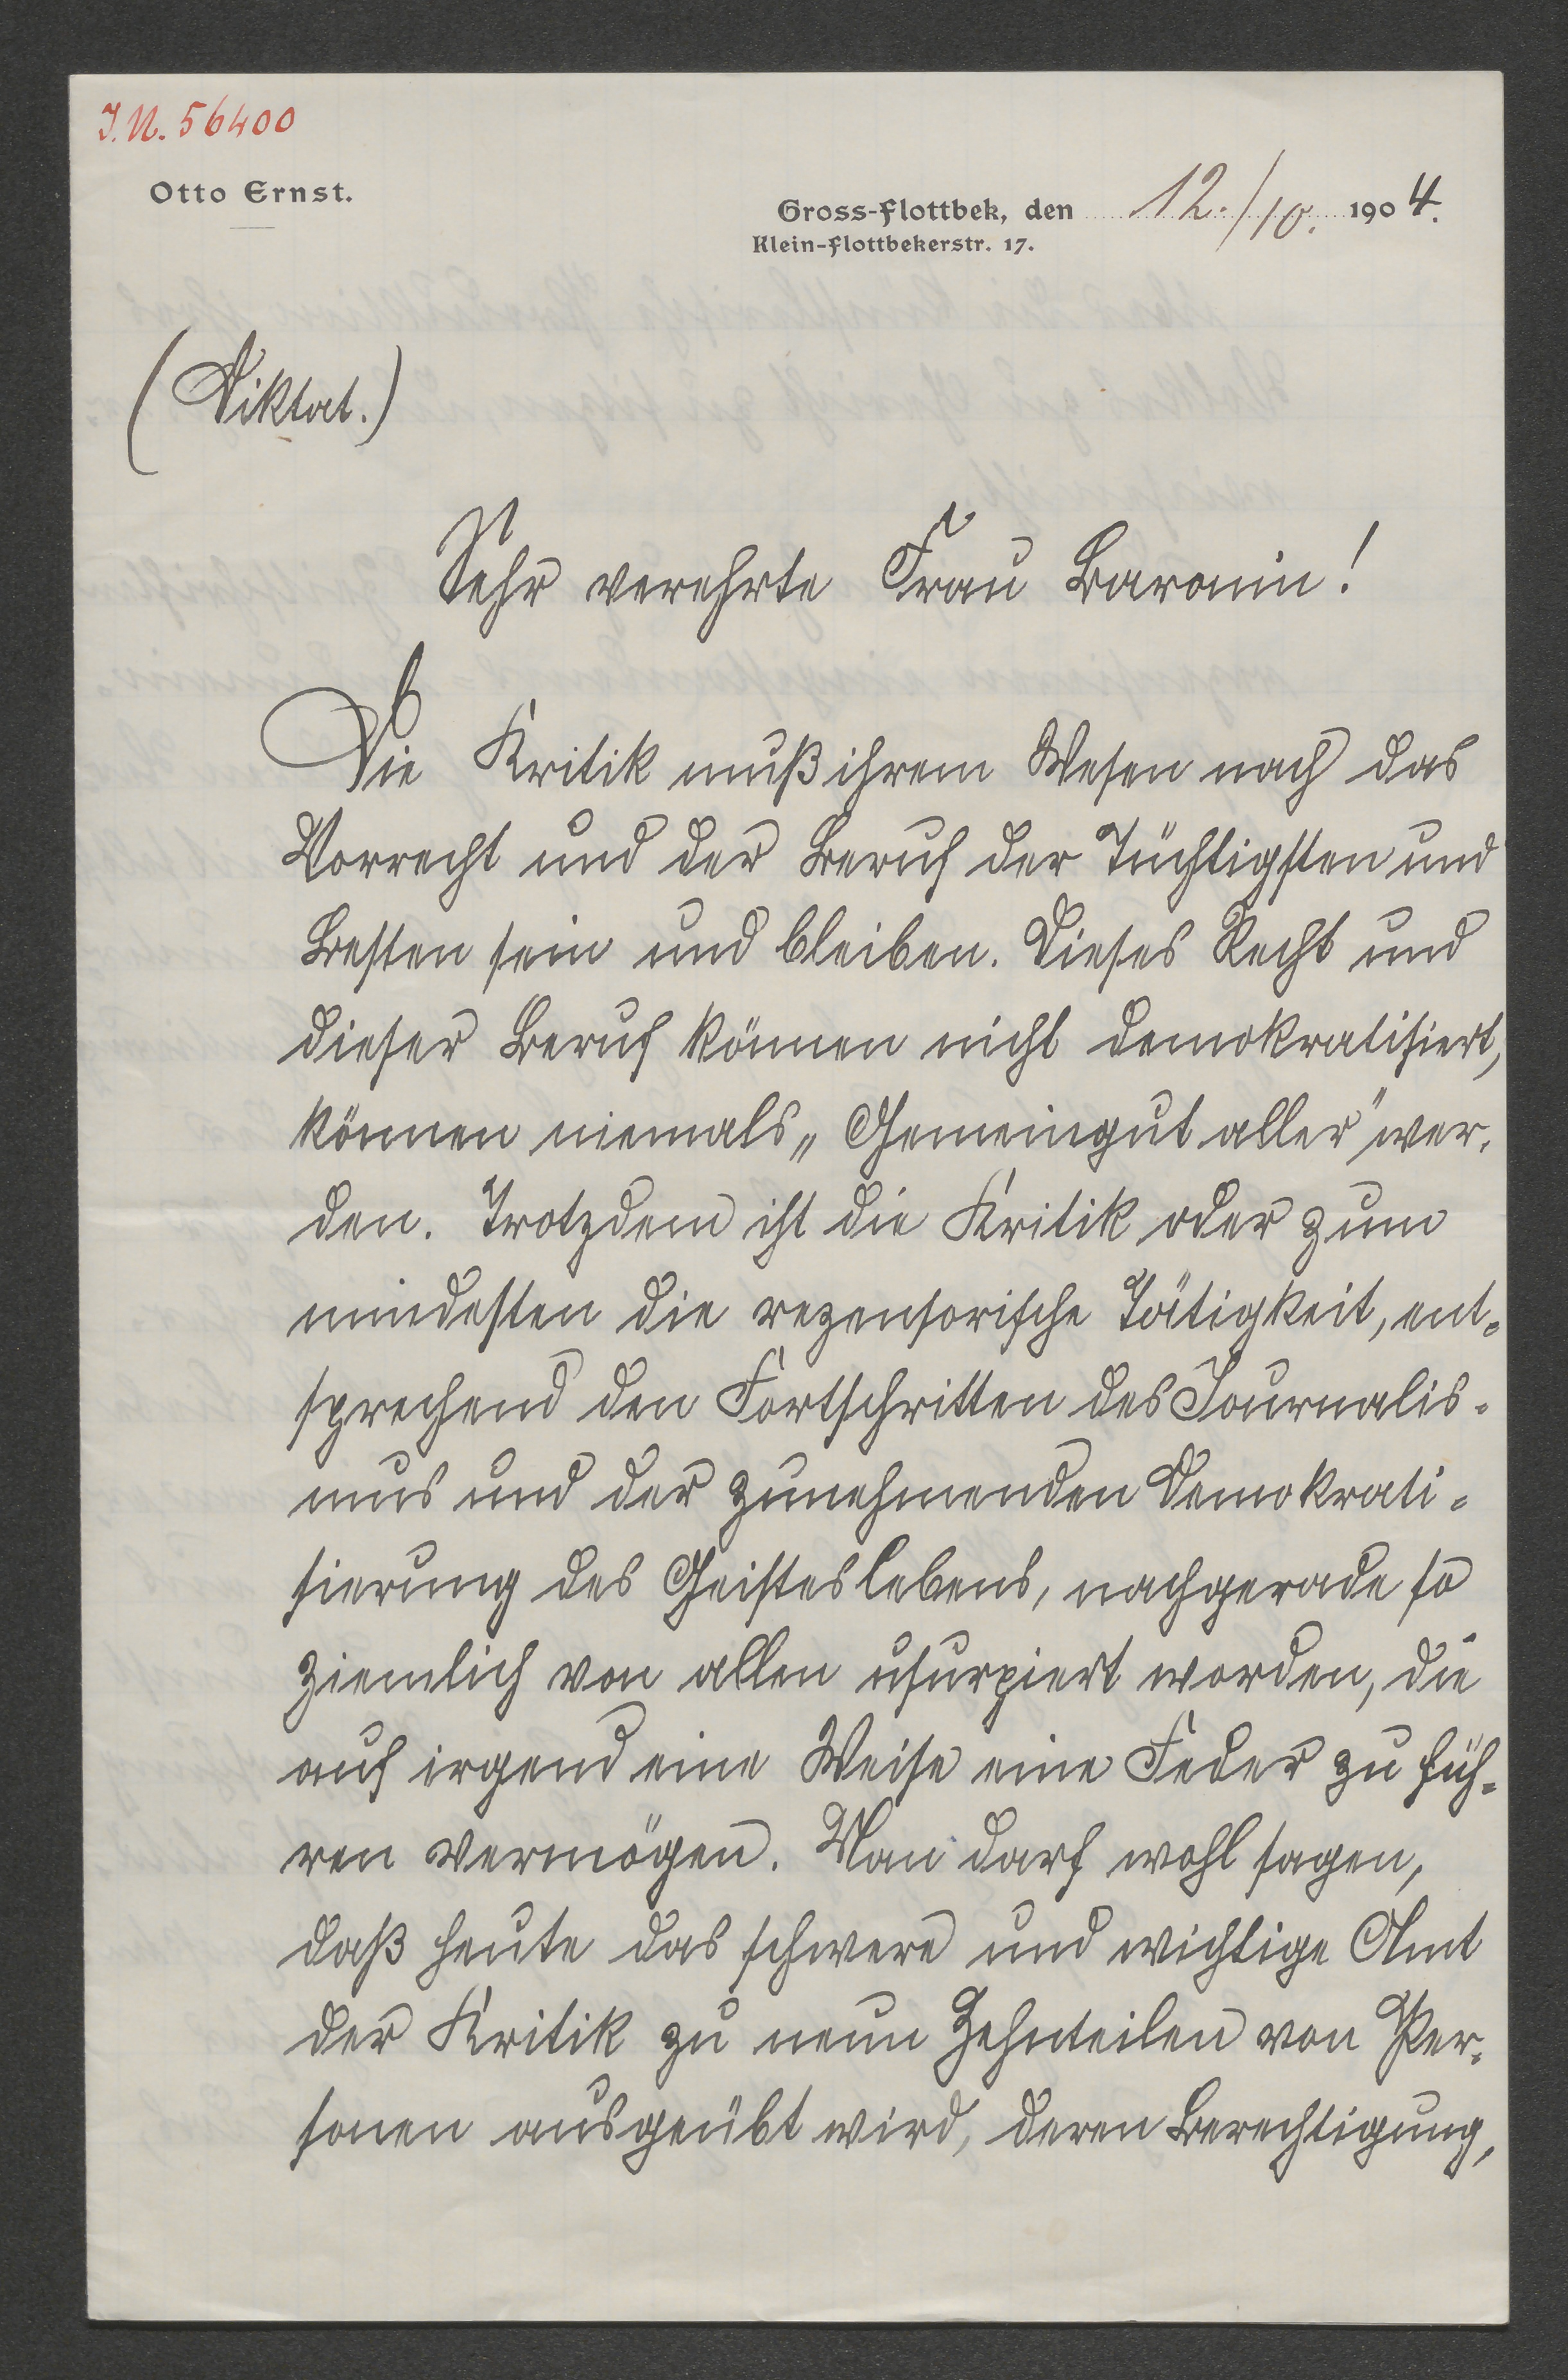 J. N. 56400
Otto Ernst.
Gross-Flottbek, den 12./10. 1904.
Klein-Flottbekerstr. 17.
(Diktat.)
Sehr verehrte Frau Baronin!
Die Kritik muß ihrem Wesen nach das
Vorrecht und der Beruf der Tüchtigsten und
Besten sein und bleiben. Dieses Recht und
dieser Beruf können nicht demokratisiert,
können niemals „Gemeingut aller" wer-
den. Trotzdem ist die Kritik oder zum
mindesten die rezensorische Tätigkeit, ent-
sprechend den Fortschritten des Journalis-
mus und der zunehmenden Demokrati-
sierung des Geisteslebens, nachgerade so
ziemlich von allen usurpiert worden, die
auf irgend eine Weise eine Feder zu füh-
ren vermögen. Man darf wohl sagen,
daß heute das schwere und wichtige Amt
der Kritik zu neun Zehnteilen von Per-
sonen ausgeübt wird, deren Berechtigung,